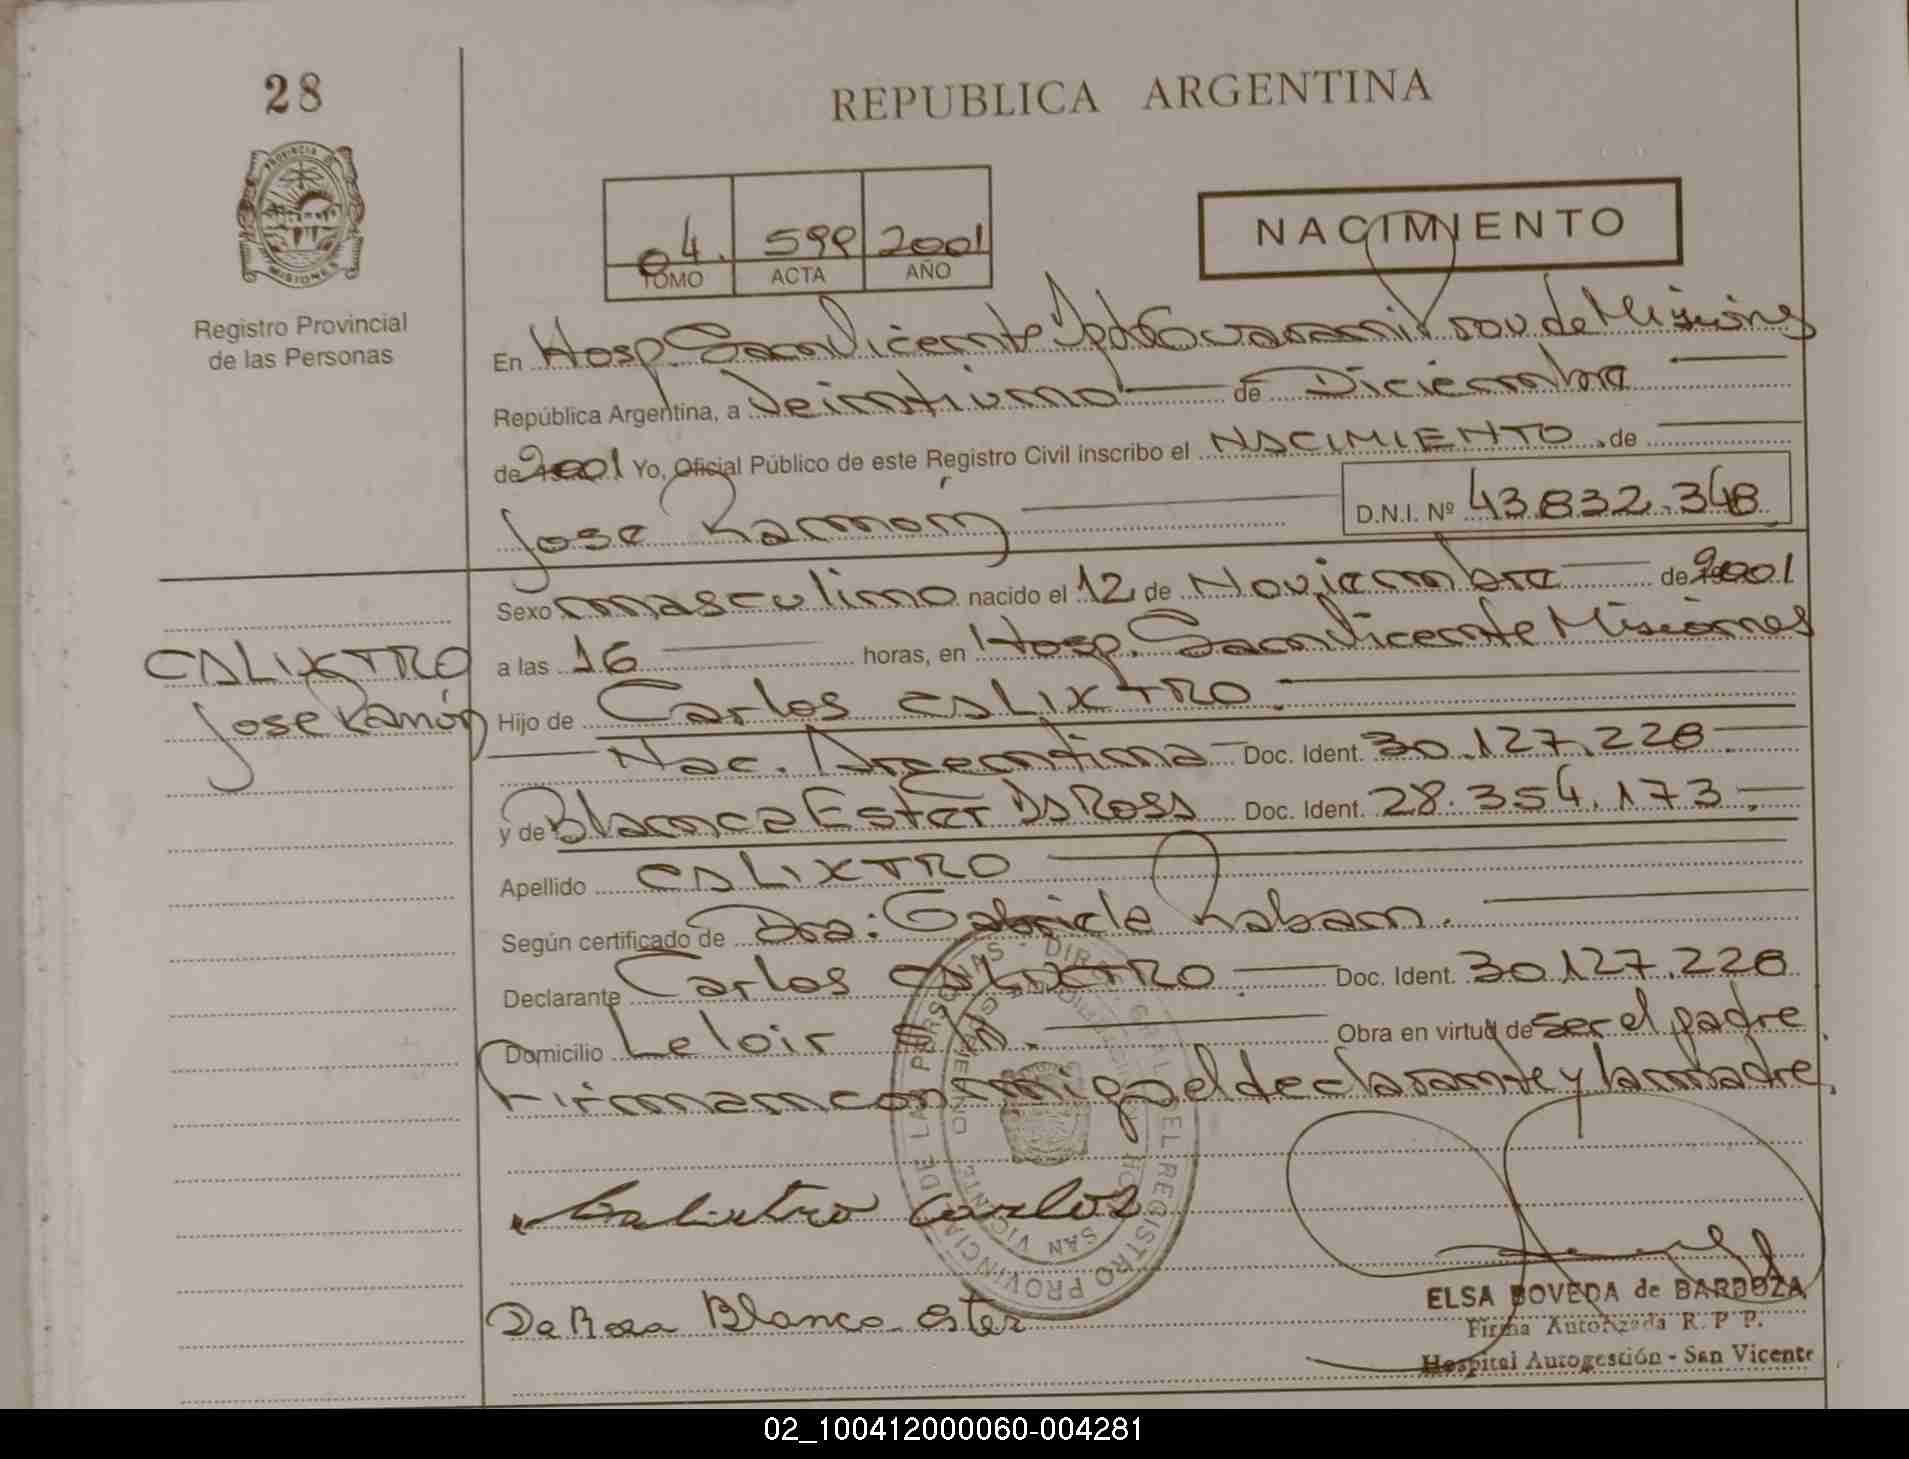 28
REPUBLICA ARGENTINA
PROVINCIA DE
MISIONES
Registro Provincial
de las Personas
04. 599 2001
TOMO ACTA AÑO
NACIMIENTO
En Hosp. San Vicente Dpto Guarani Prov. de Misiones
República Argentina, a Veintiuno de Diciembre
de 2001 Yo, Oficial Público de este Registro Civil inscribo el NACIMIENTO de
Jose Ramón D.N.I. Nº 43.832.348
Sexo masculino nacido el 12 de Noviembre de 2001
a las 16 horas, en Hosp. San Vicente Misiones
CALIXTRO
Jose Ramón
Hijo de Carlos CALIXTRO.
Nac. Argentina Doc. Ident. 30.127.228
y de Blanca Ester DA ROSA Doc. Ident. 28.354.173.
Apellido CALIXTRO
Según certificado de Dra: Gabriela Raban.
Declarante Carlos CALIXTRO Doc. Ident. 30.127.228
Domicilio Leloir Obra en virtud de ser el padre.
Firman conmigo el declarante y la madre.
DIRE. GRAL. DEL REGISTRO PROVINCIAL DE LAS PERSONAS
SAN VICENTE
Calixtro Carlos
Da Rosa Blanca ester
ELSA BOVEDA de BARBOZA
Firma Autorizada R. P. P.
Hospital Autogestión - San Vicente
02_100412000060-004281